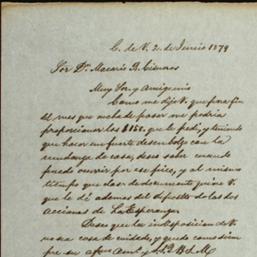 C. de V. 2. de Junio 1879
Sor Dn. Macario B. Cisneros
Muy Sor. y Amigo mio
Como me dijo V. que para fin
el mes que acaba de pasar me podria
proporcionar los $150. que le pedi, y teniendo
que hacer un fuerte desembolso con la
mudanza de casa, deseo saber cuando
puedo ocurrir por ese pico, y al mismo
tiempo que clase de documento quiere V.
que le dé ademas del deposito de las dos
acciones de La Esperanza.
Deseo que la indisposicion de V.
no sea cosa de cuidado, y quedo como siem
pre su afmo. Aml. y S. S. Q. B. S. M.